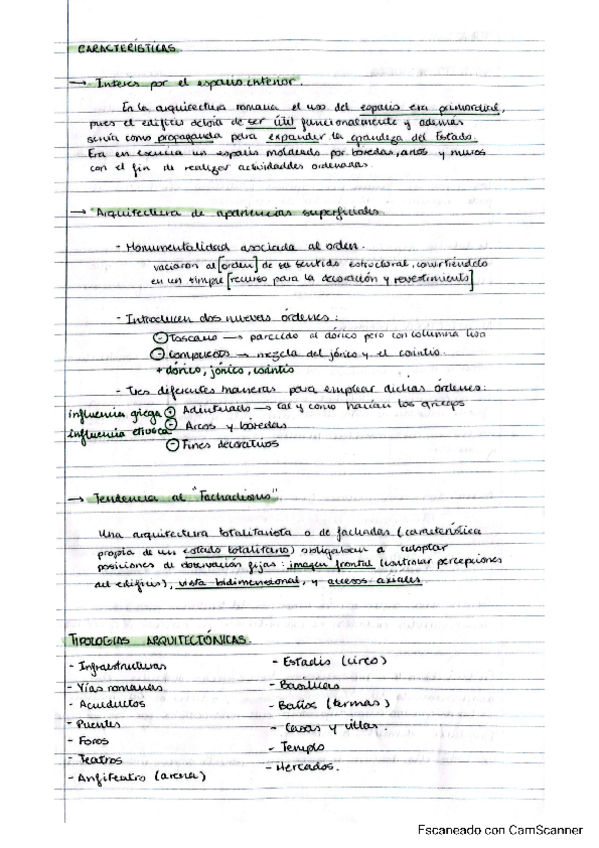 CARACTERÍSTICAS.
→ Interés por el espacio interior.
En la arquitectura romana el uso del espacio era primordial,
pues el edificio debía de ser útil funcionalmente y además
servía como propaganda para expander la grandeza del Estado.
Era en esencia un espacio moldeado por bóvedas, arcos y muros
con el fin de realizar actividades ordenadas.
→ Arquitectura de apariencias superficiales.
- Monumentalidad asociada al orden.
vaciaron al [orden] de su sentido estructural, convirtiéndolo
en un simple [recurso para la decoración y revestimiento]
- Introducen dos nuevos órdenes:
- Toscano → parecido al dórico pero con columna lisa
- Compuesto → mezcla del jónico y el corintio.
+ dórico, jónico, corintio
- Tres diferentes maneras para emplear dichos órdenes:
influencia griega - Adintelado → tal y como hacían los griegos
influencia etrusca - Arcos y bóvedas
- Fines decorativos
→ Tendencia al "Fachadismo".
Una arquitectura totalitarista o de fachadas (característica
propia de un estado totalitario) obligaban a adoptar
posiciones de observación fijas: imagen frontal (controlar percepciones
del edificio), vista bidimensional, y accesos axiales
TIPOLOGÍAS ARQUITECTÓNICAS.
- Infraestructuras
- Vías romanas
- Acueductos
- Puentes
- Foros
- Teatros
- Anfiteatro (arena)
- Estadio (circo)
- Basílicas
- Baños (termas)
- Casas y villas.
- Templo
- Mercados.
Escaneado con CamScanner